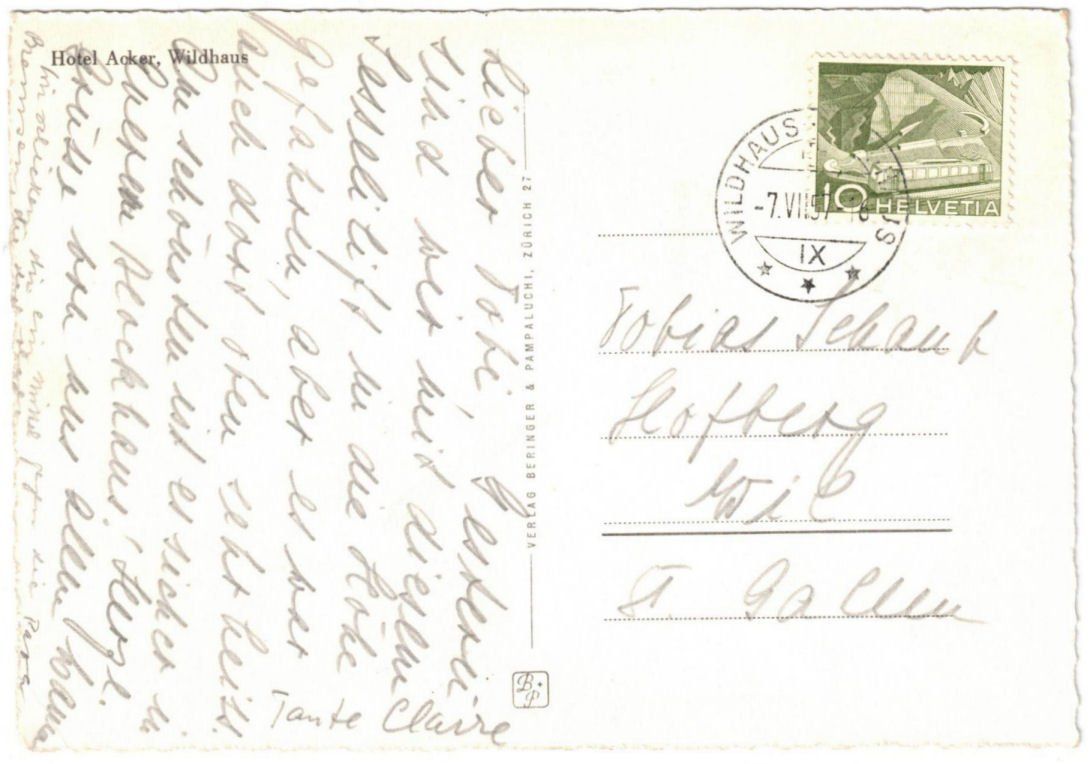 Hotel Acker, Wildhaus
Lieber Tobi, Gestern
sind wir mit diesem
Sessellift in die Höhe
gefahren, aber es war
auch dort oben sehr heiss.
Am schönsten ist es sicher in
Eurem Blockhaus! Herzl.
Grüsse von uns allen
Tante Claire
VERLAG BERINGER & PAMPALUCHI, ZÜRICH 27
B P
WILDHAUS
-7.VII.57
IX
10 HELVETIA
Tobias Schaub
Hofberg
Wil
St. Gallen